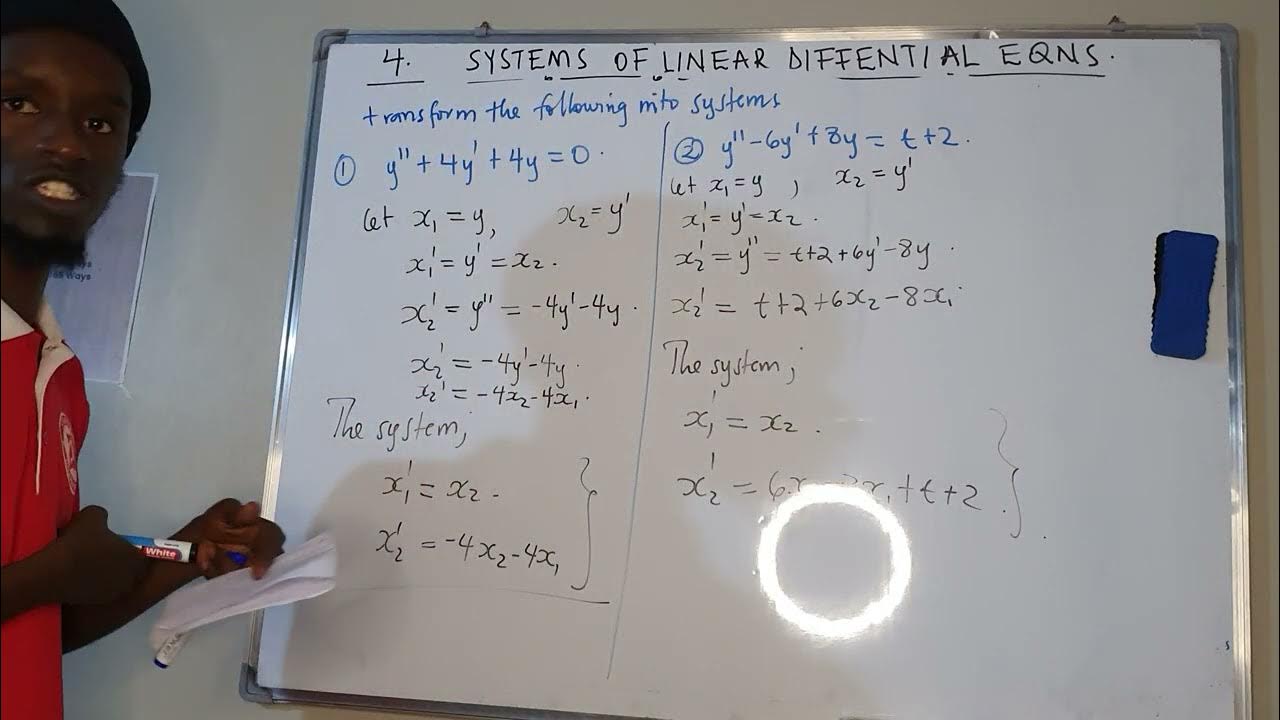 4. SYSTEMS OF LINEAR DIFFENTIAL EQNS.
transform the following into systems
① y'' + 4y' + 4y = 0.
let x₁ = y, x₂ = y'
x₁' = y' = x₂.
x₂' = y'' = -4y' - 4y.
x₂' = -4y' - 4y.
x₂' = -4x₂ - 4x₁.
The system;
x₁' = x₂.
x₂' = -4x₂ - 4x₁
② y'' - 6y' + 8y = t + 2.
let x₁ = y, x₂ = y'
x₁' = y' = x₂.
x₂' = y'' = t + 2 + 6y' - 8y.
x₂' = t + 2 + 6x₂ - 8x₁.
The system;
x₁' = x₂.
x₂' = 6x x₁ + t + 2.
ways
Ways
White